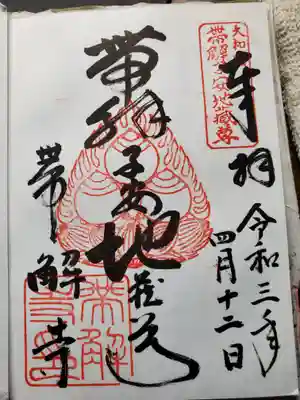 大和
帯解子安地蔵尊
奉拝
令和三年
四月十二日
帯解子安地蔵尊
帯解寺
帯解
寺印